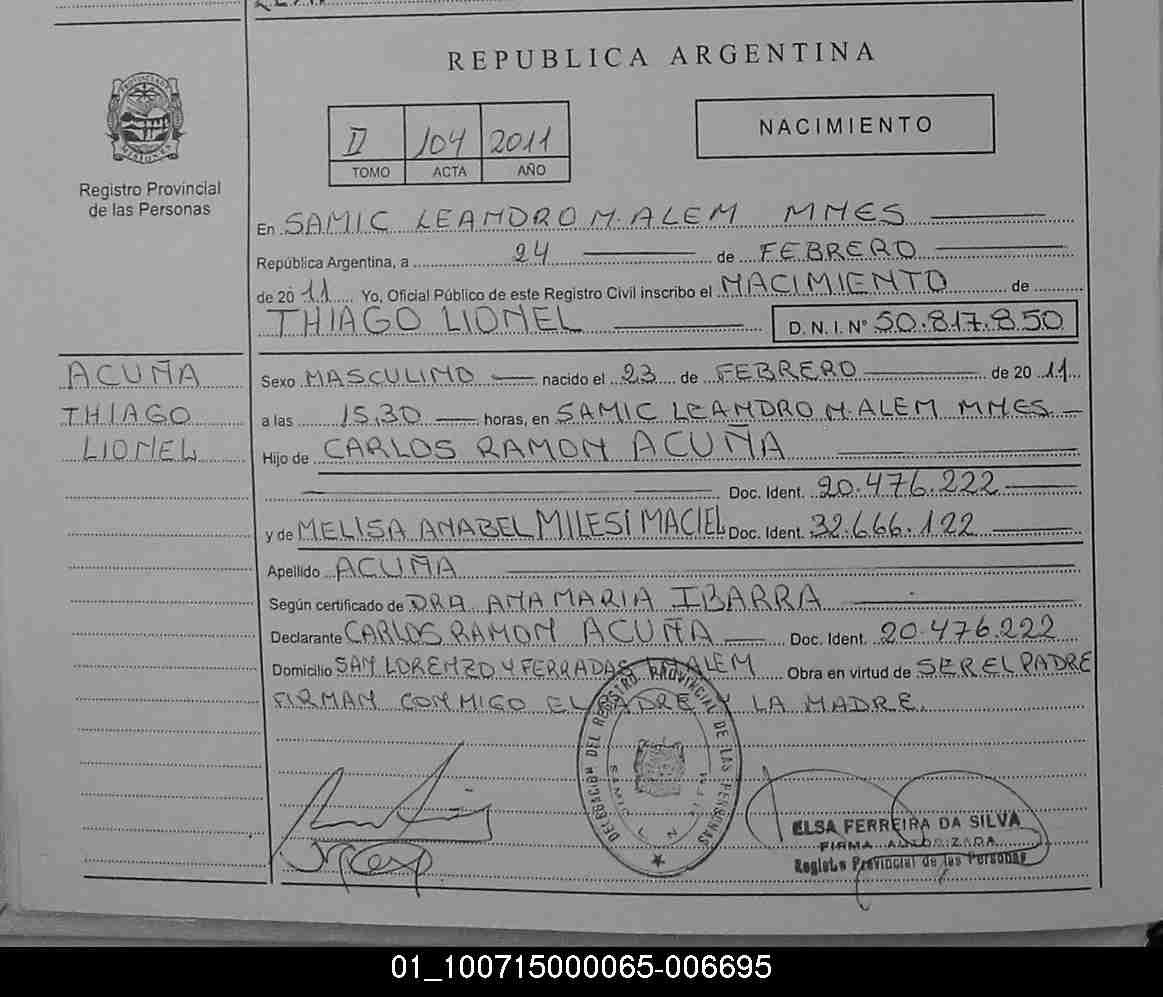 REPUBLICA ARGENTINA
II 104 2011
TOMO ACTA AÑO
NACIMIENTO
PROVINCIA DE MISIONES
Registro Provincial
de las Personas
En SAMIC LEANDRO N. ALEM MNES
República Argentina, a 24 de FEBRERO
de 2011 Yo, Oficial Público de este Registro Civil inscribo el NACIMIENTO de
THIAGO LIONEL D.N.I. N° 50.817.850
ACUÑA
THIAGO
LIONEL
Sexo MASCULINO nacido el 23 de FEBRERO de 2011
a las 15,30 horas, en SAMIC LEANDRO N. ALEM MNES
Hijo de CARLOS RAMON ACUÑA
Doc. Ident. 20.476.222
y de MELISA ANABEL MILESI MACIEL Doc. Ident. 32.666.122
Apellido ACUÑA
Según certificado de DRA ANA MARIA IBARRA
Declarante CARLOS RAMON ACUÑA Doc. Ident. 20.476.222
Domicilio SAN LORENZO Y FERRADAS LN ALEM Obra en virtud de SER EL PADRE
FIRMAN CONMIGO EL PADRE Y LA MADRE.
DELEGACION DEL REGISTRO PROVINCIAL DE LAS PERSONAS
SAMIC L. N. ALEM
ELSA FERREIRA DA SILVA
FIRMA AUTORIZADA
Registro Provincial de las Personas
01_100715000065-006695